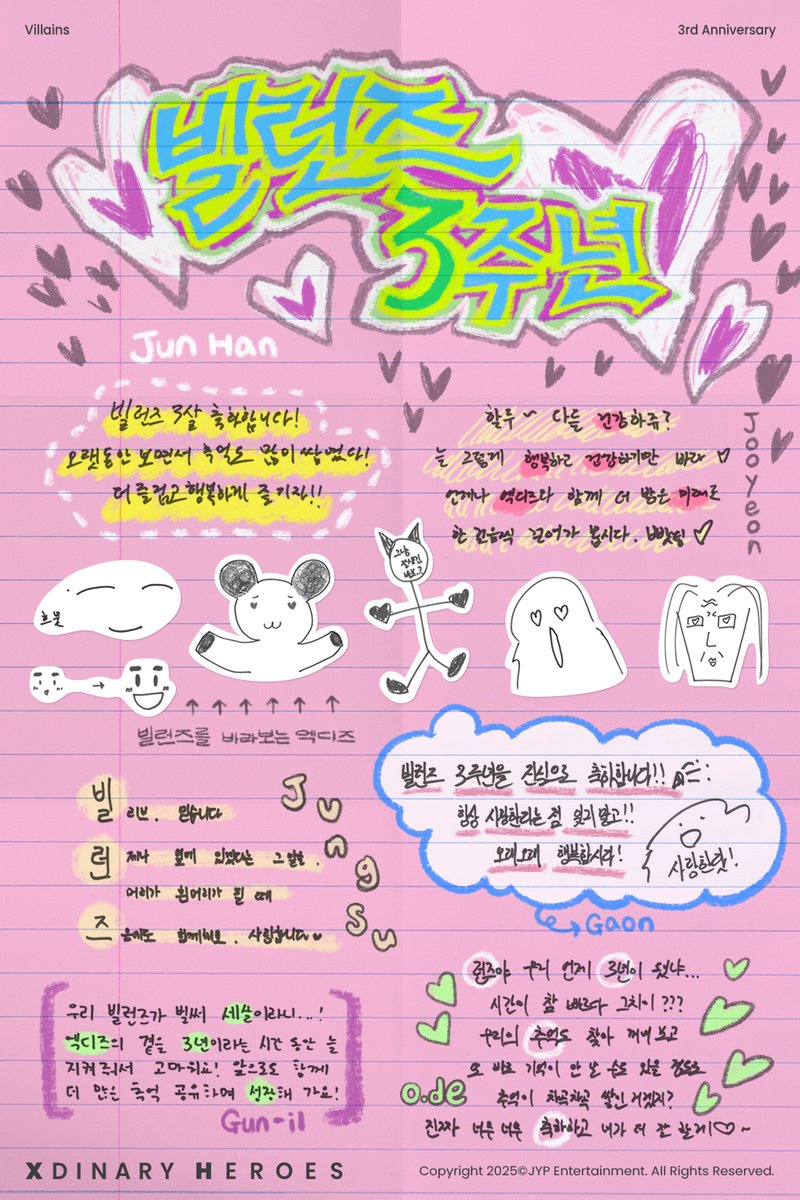 Villains
3rd Anniversary
빌런즈
3주년
Jun Han
빌런즈 3살 축하합니다!
오랫동안 보면서 추억도 많이 쌓였다!
더 즐겁고 행복하게 즐기자!!
Jooyeon
할루~ 다들 건강하쥬?
늘 그렇게 행복하고 건강하기만 바라 ♡
언제나 엑디즈와 함께 더 밝은 미래로
한 걸음씩 걸어가 봅시다. 빠빳팅 ♡
흐뭇
빌런즈를 바라보는 엑디즈
Jungsu
빌 리브. 믿습니다
런 제나 옆에 있겠다는 그 말을.
머리가 흰머리가 될 때
즈 음에도 함께해요. 사랑합니다♡
빌런즈 3주년을 진심으로 축하합니다!!
항상 사랑한다는 점 잊지말고!!
오래오래 행복합시다!
사랑한닷!
Gaon
우리 빌런즈가 벌써 세살이라니...!
엑디즈의 곁을 3년이라는 시간 동안 늘
지켜줘서 고마워요! 앞으로도 함께
더 많은 추억 공유하며 성장해 가요!
Gun-il
런즈야 우리 언제 3년이 됐냐...
시간이 참 빠르다 그치이???
우리의 추억도 찾아 꺼내 보고
또 바로 기억이 안 날 수도 있을 정도로
추억이 차곡차곡 쌓인 거겠지?
진짜 너무 너무 축하하고 내가 더 잘 할게♡~
O.de
XDINARY HEROES
Copyright 2025©JYP Entertainment. All Rights Reserved.